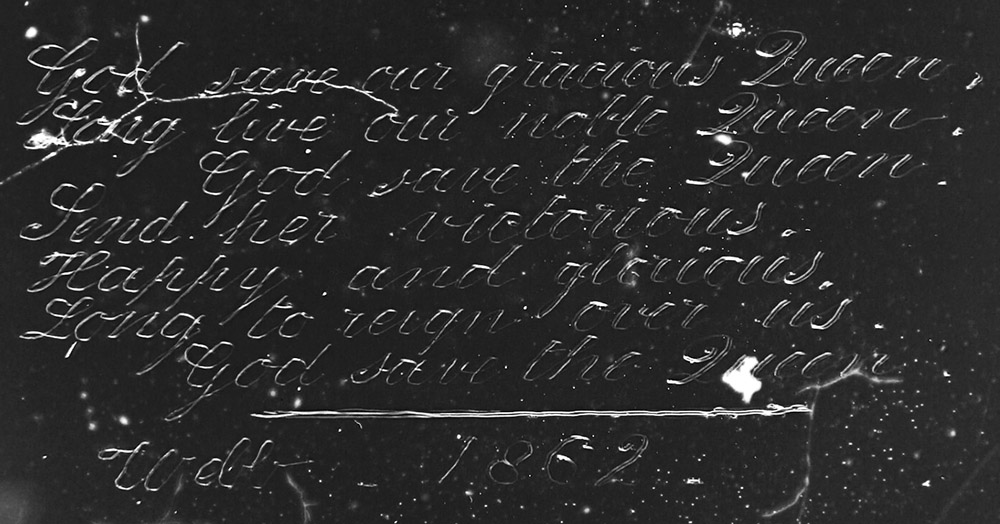 God save our gracious Queen,
Long live our noble Queen.
God save the Queen.
Send her victorious.
Happy and glorious.
Long to reign over us
God save the Queen
1862